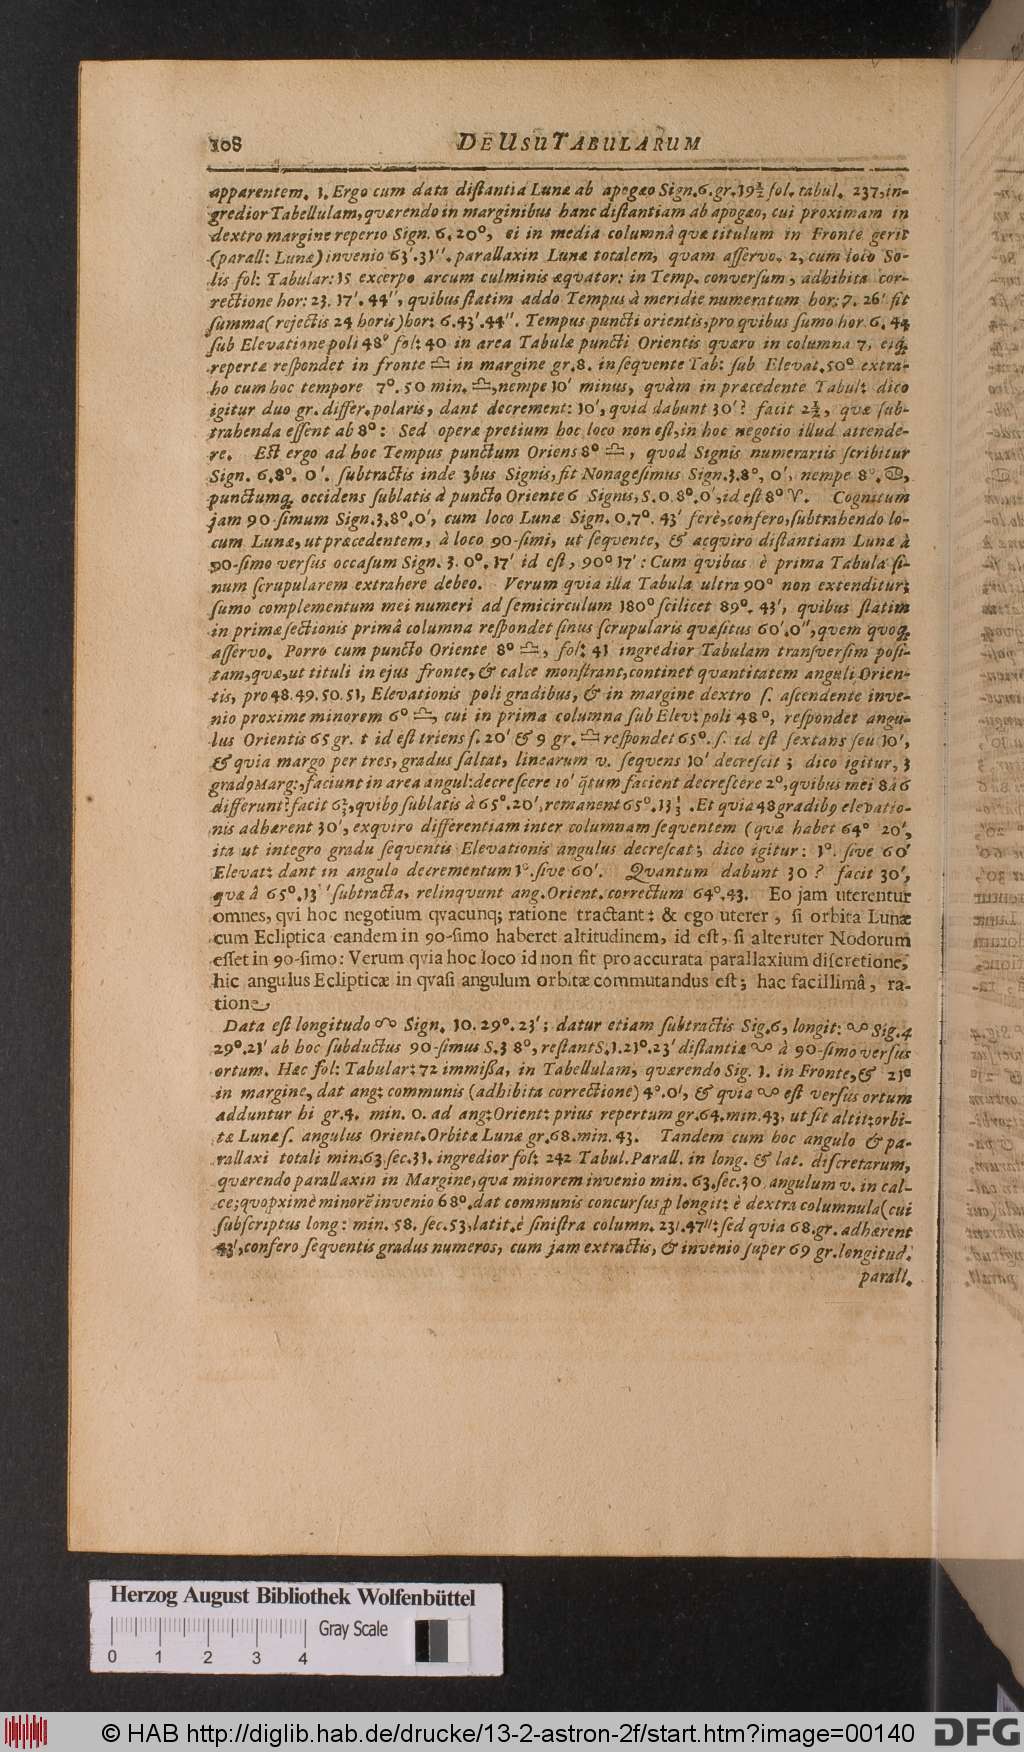 108 DE USU TABULARUM
apparentem. 1. Ergo cum data distantia Lunæ ab apogæo Sign.6.gr.19½ fol. tabul. 237, in-
gredior Tabellulam, quærendo in marginibus hanc distantiam ab apogæo, cui proximam in
dextro margine reperio Sign. 6.20°, ei in media columnâ quæ titulum in Fronte gerit
(parall: Lunæ) invenio 63'.31''. parallaxin Lunæ totalem, quam asservo. 2, cum loco So-
lis fol: Tabular: 15 excerpo arcum culminis æquator: in Temp. conversum, adhibita cor-
rectione hor: 23. 17'. 44'', quibus statim addo Tempus à meridie numeratum hor: 7. 26' fit
summa (rejectis 24 horis) hor: 6.43'.44''. Tempus puncti orientis, pro quibus sumo hor. 6. 44
sub Elevatione poli 48° fol: 40 in area Tabulæ puncti Orientis quæro in columna 7, eiq;
repertæ respondet in fronte ♎ in margine gr.8. in sequente Tab: sub Elevat. 50° extra-
ho cum hoc tempore 7°. 50 min. ♎, nempe 10' minus, quàm in præcedente Tabul: dico
igitur duo gr. differ. polaris, dant decrement: 10', quid dabunt 30'? facit 2½, quæ sub-
trahenda essent ab 8°: Sed operæ pretium hoc loco non est, in hoc negotio illud attende-
re. Est ergo ad hoc Tempus punctum Oriens 8° ♎, quod Signis numerariis scribitur
Sign. 6.8°. 0'. subtractis inde 3bus Signis, fit Nonagesimus Sign.3.8°, 0', nempe 8°. ♋,
punctumq; occidens sublatis à puncto Oriente 6 Signis, S. 0. 8°. 0'; id est 8° ♈. Cognitum
jam 90-simum Sign.3.8°.0', cum loco Lunæ Sign. 0.7°. 43' ferè, confero, subtrahendo lo-
cum Lunæ, ut præcedentem, à loco 90-simi, ut sequente, & acquiro distantiam Lunæ à
90-simo versus occasum Sign. 3. 0°. 17' id est, 90° 17': Cum quibus è prima Tabula si-
num scrupularem extrahere debeo. Verum quia illa Tabula ultra 90° non extenditur;
sumo complementum mei numeri ad semicirculum 180° scilicet 89°. 43', quibus statim
in primæ sectionis primâ columna respondet sinus scrupularis quæsitus 60'.0'', quem quoq;
asservo. Porro cum puncto Oriente 8° ♎, fol: 41 ingredior Tabulam transversim posi-
tam, quæ, ut tituli in ejus fronte, & calce monstrant, continet quantitatem anguli Orien-
tis, pro 48.49.50.51, Elevationis poli gradibus, & in margine dextro s. ascendente inve-
nio proxime minorem 6° ♎, cui in prima columna sub Elev: poli 48°, respondet angu-
lus Orientis 65 gr. t id est triens s. 20' & 9 gr. ♎ respondet 65°. s. id est sextans seu 10',
& quia margo per tres, gradus saltat, linearum v. sequens 10' decrescit; dico igitur, 3
grad9 Marg:, faciunt in area angul: decrescere 10' q̃tum facient decrescere 2°, quibus mei 8 à 6
differunt? facit 6⅔, quib9 sublatis à 65°.20', remanent 65°.13⅓. Et quia 48 gradib9 elevatio-
nis adhærent 30', exquiro differentiam inter columnam sequentem (quæ habet 64° 20',
ita ut integro gradu sequentis Elevationis angulus decrescat; dico igitur: 1°. sive 60'
Elevat: dant in angulo decrementum 1°. sive 60'. Quantum dabunt 30? facit 30',
quæ â 65°.13' subtracta, relinquunt ang. Orient. correctum 64°.43. Eo jam uterentur
omnes, qvi hoc negotium qvacunq; ratione tractant: & ego uterer, si orbita Lunæ
cum Ecliptica eandem in 90-simo haberet altitudinem, id est, si alteruter Nodorum
esset in 90-simo: Verum qvia hoc loco id non fit pro accurata parallaxium discretione,
hic angulus Eclipticæ in qvasi angulum orbitæ commutandus est; hac facillimâ, ra-
tione
Data est longitudo ☊ Sign. 10. 29°. 23'; datur etiam subtractis Sig.6, longit: ☋ Sig. 4
29°.21' ab hoc subductus 90-simus S.3 8°, restant S.1.21°.23' distantiæ ☋ à 90-simo versus
ortum. Hæc fol: Tabular: 72 immissa, in Tabellulam, quærendo Sig. 1. in Fronte, & 21°
in margine, dat ang: communis (adhibita correctione) 4°.0', & quia ☋ est versus ortum
adduntur hi gr.4. min. 0. ad ang: Orient: prius repertum gr.64.min.43, ut sit altit: orbi-
tæ Lunæ s. angulus Orient. Orbitæ Lunæ gr.68.min. 43. Tandem cum hoc angulo & pa-
rallaxi totali min.63.sec.31. ingredior fol: 242 Tabul. Parall. in long. & lat. discretarum,
quærendo parallaxin in Margine, qua minorem invenio min. 63.sec.30. angulum v. in cal-
ce; quo pximè minorẽ invenio 68°. dat communis concursus p longit: è dextra columnula (cui
subscriptus long: min. 58. sec.53, latit. è sinistra column. 23'.47'': sed quia 68.gr. adhærent
43', confero sequentis gradus numeros, cum jam extractis, & invenio super 69 gr. longitud.
parall.
Herzog August Bibliothek Wolfenbüttel
Gray Scale
0 1 2 3 4
© HAB http://diglib.hab.de/drucke/13-2-astron-2f/start.htm?image=00140 DFG